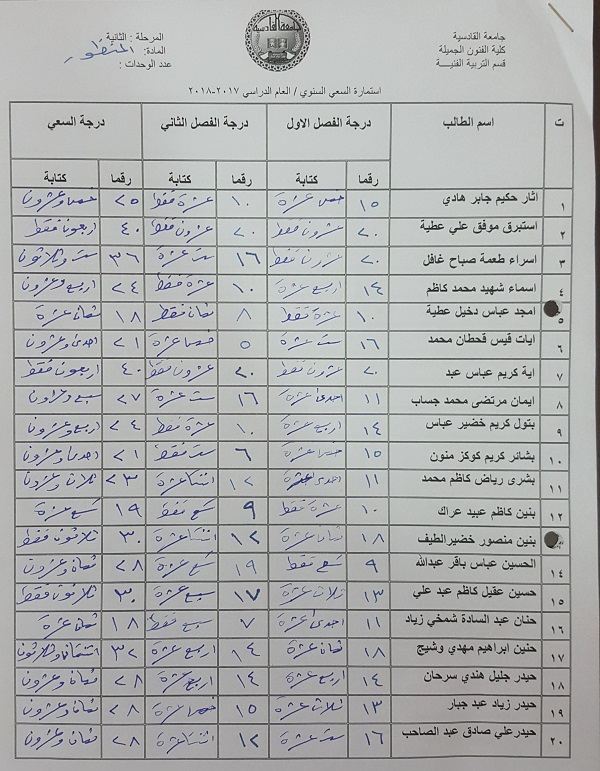 جامعة القادسية
كلية الفنون الجميلة
قسم التربية الفنيـــة
جامعة القادسية
المرحلة : الثانية
المادة: المنظور
عدد الوحدات :
استمارة السعي السنوي / العام الدراسي ٢٠١٧-٢٠١٨
ت اسم الطالب درجة الفصل الاول درجة الفصل الثاني درجة السعي
رقما كتابة رقما كتابة رقما كتابة
١ اثار حكيم جابر هادي ١٥ خمس عشرة ١٠ عشرة فقط ٢٥ خمس وعشرون
٢ استبرق موفق علي عطية ٢٠ عشرون فقط ٢٠ عشرون فقط ٤٠ اربعون فقط
٣ اسراء طعمة صباح غافل ٢٠ عشرون فقط ١٦ ست عشرة ٣٦ ست وثلاثون
٤ اسماء شهيد محمد كاظم ١٤ اربع عشرة ١٠ عشرة فقط ٢٤ اربع وعشرون
٥ امجد عباس دخيل عطية ١٠ عشرة فقط ٨ ثمان فقط ١٨ ثمان عشرة
٦ ايات قيس قحطان محمد ١٦ ست عشرة ٥ خمس عشرة ٢١ احدى وعشرون
٧ اية كريم عباس عبد ٢٠ عشرون فقط ٢٠ عشرون فقط ٤٠ اربعون فقط
٨ ايمان مرتضى محمد جساب ١١ احدى عشرة ١٦ ست عشرة ٢٧ سبع وعشرون
٩ بتول كريم خضير عباس ١٤ اربع عشرة ١٠ عشرة فقط ٢٤ اربع وعشرون
١٠ بشائر كريم كوكز منون ١٥ خمس عشرة ٦ ست فقط ٢١ احدى وعشرون
١١ بشرى رياض كاظم محمد ١١ احدى عشرة ١٢ اثنتا عشرة ٢٣ ثلاث وعشرون
١٢ بنين كاظم عبيد عراك ١٠ عشرة فقط ٩ تسع فقط ١٩ تسع عشرة
بنين منصور خضيرالطيف ١٨ ثمان عشرة ١٢ اثنتا عشرة ٣٠ ثلاثون فقط
١٤ الحسين عباس باقر عبدالله ٩ تسع فقط ١٩ تسع عشرة ٢٨ ثمان وعشرون
١٥ حسين عقيل كاظم عبد علي ١٣ ثلاث عشرة ١٧ سبع عشرة ٣٠ ثلاثون فقط
١٦ حنان عبد السادة شمخي زياد ١١ احدى عشرة ٧ سبع فقط ١٨ ثمان عشرة
١٧ حنين ابراهيم مهدي وشيج ١٨ ثمان عشرة ١٤ اربع عشرة ٣٢ اثنتان وثلاثون
١٨ حيدر جليل هندي سرحان ١٤ اربع عشرة ١٤ اربع عشرة ٢٨ ثمان وعشرون
١٩ حيدر زياد عبد جبار ١٣ ثلاث عشرة ١٥ خمس عشرة ٢٨ ثمان وعشرون
٢٠ حيدرعلي صادق عبد الصاحب ١٦ ست عشرة ١٢ اثنتا عشرة ٢٨ ثمان وعشرون